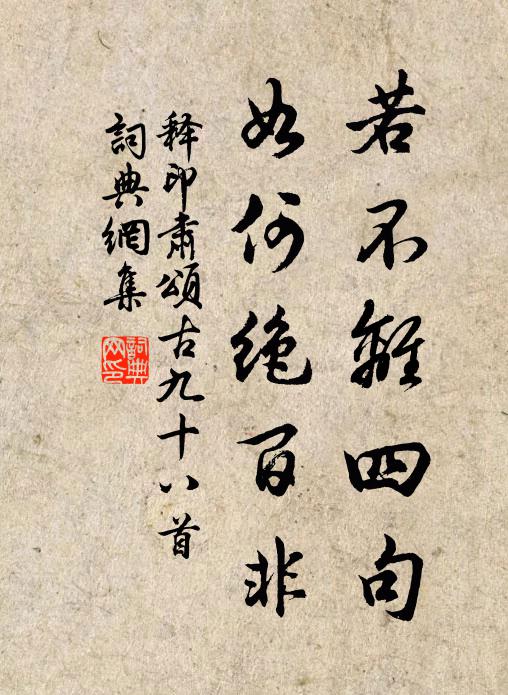 若不離四句
如何絕百非
釋印肅頌古九十八首
詞典網集
詞典網印